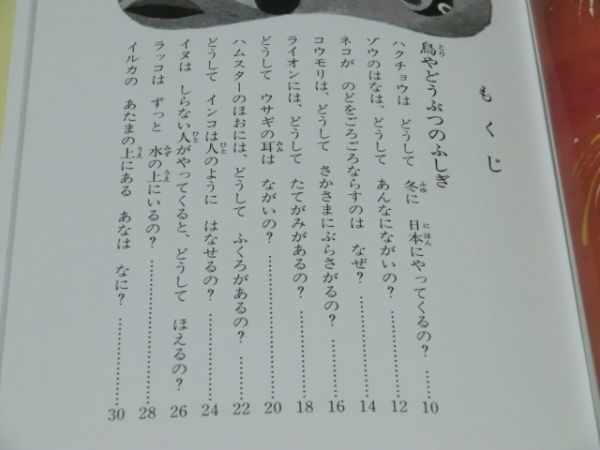 もくじ
鳥やどうぶつのふしぎ
ハクチョウは どうして 冬に 日本にやってくるの?……10
ゾウのはなは、どうして あんなにながいの?……12
ネコが のどをごろごろならすのは なぜ?……14
コウモリは、どうして さかさまにぶらさがるの?……16
ライオンには、どうして たてがみがあるの?……18
どうして ウサギの耳は ながいの?……20
ハムスターのほおには、どうして ふくろがあるの?……22
どうして インコは人のように はなせるの?……24
イヌは しらない人がやってくると、どうして ほえるの?……26
ラッコは ずっと 水の上にいるの?……28
イルカの あたまの上にある あなは なに?……30